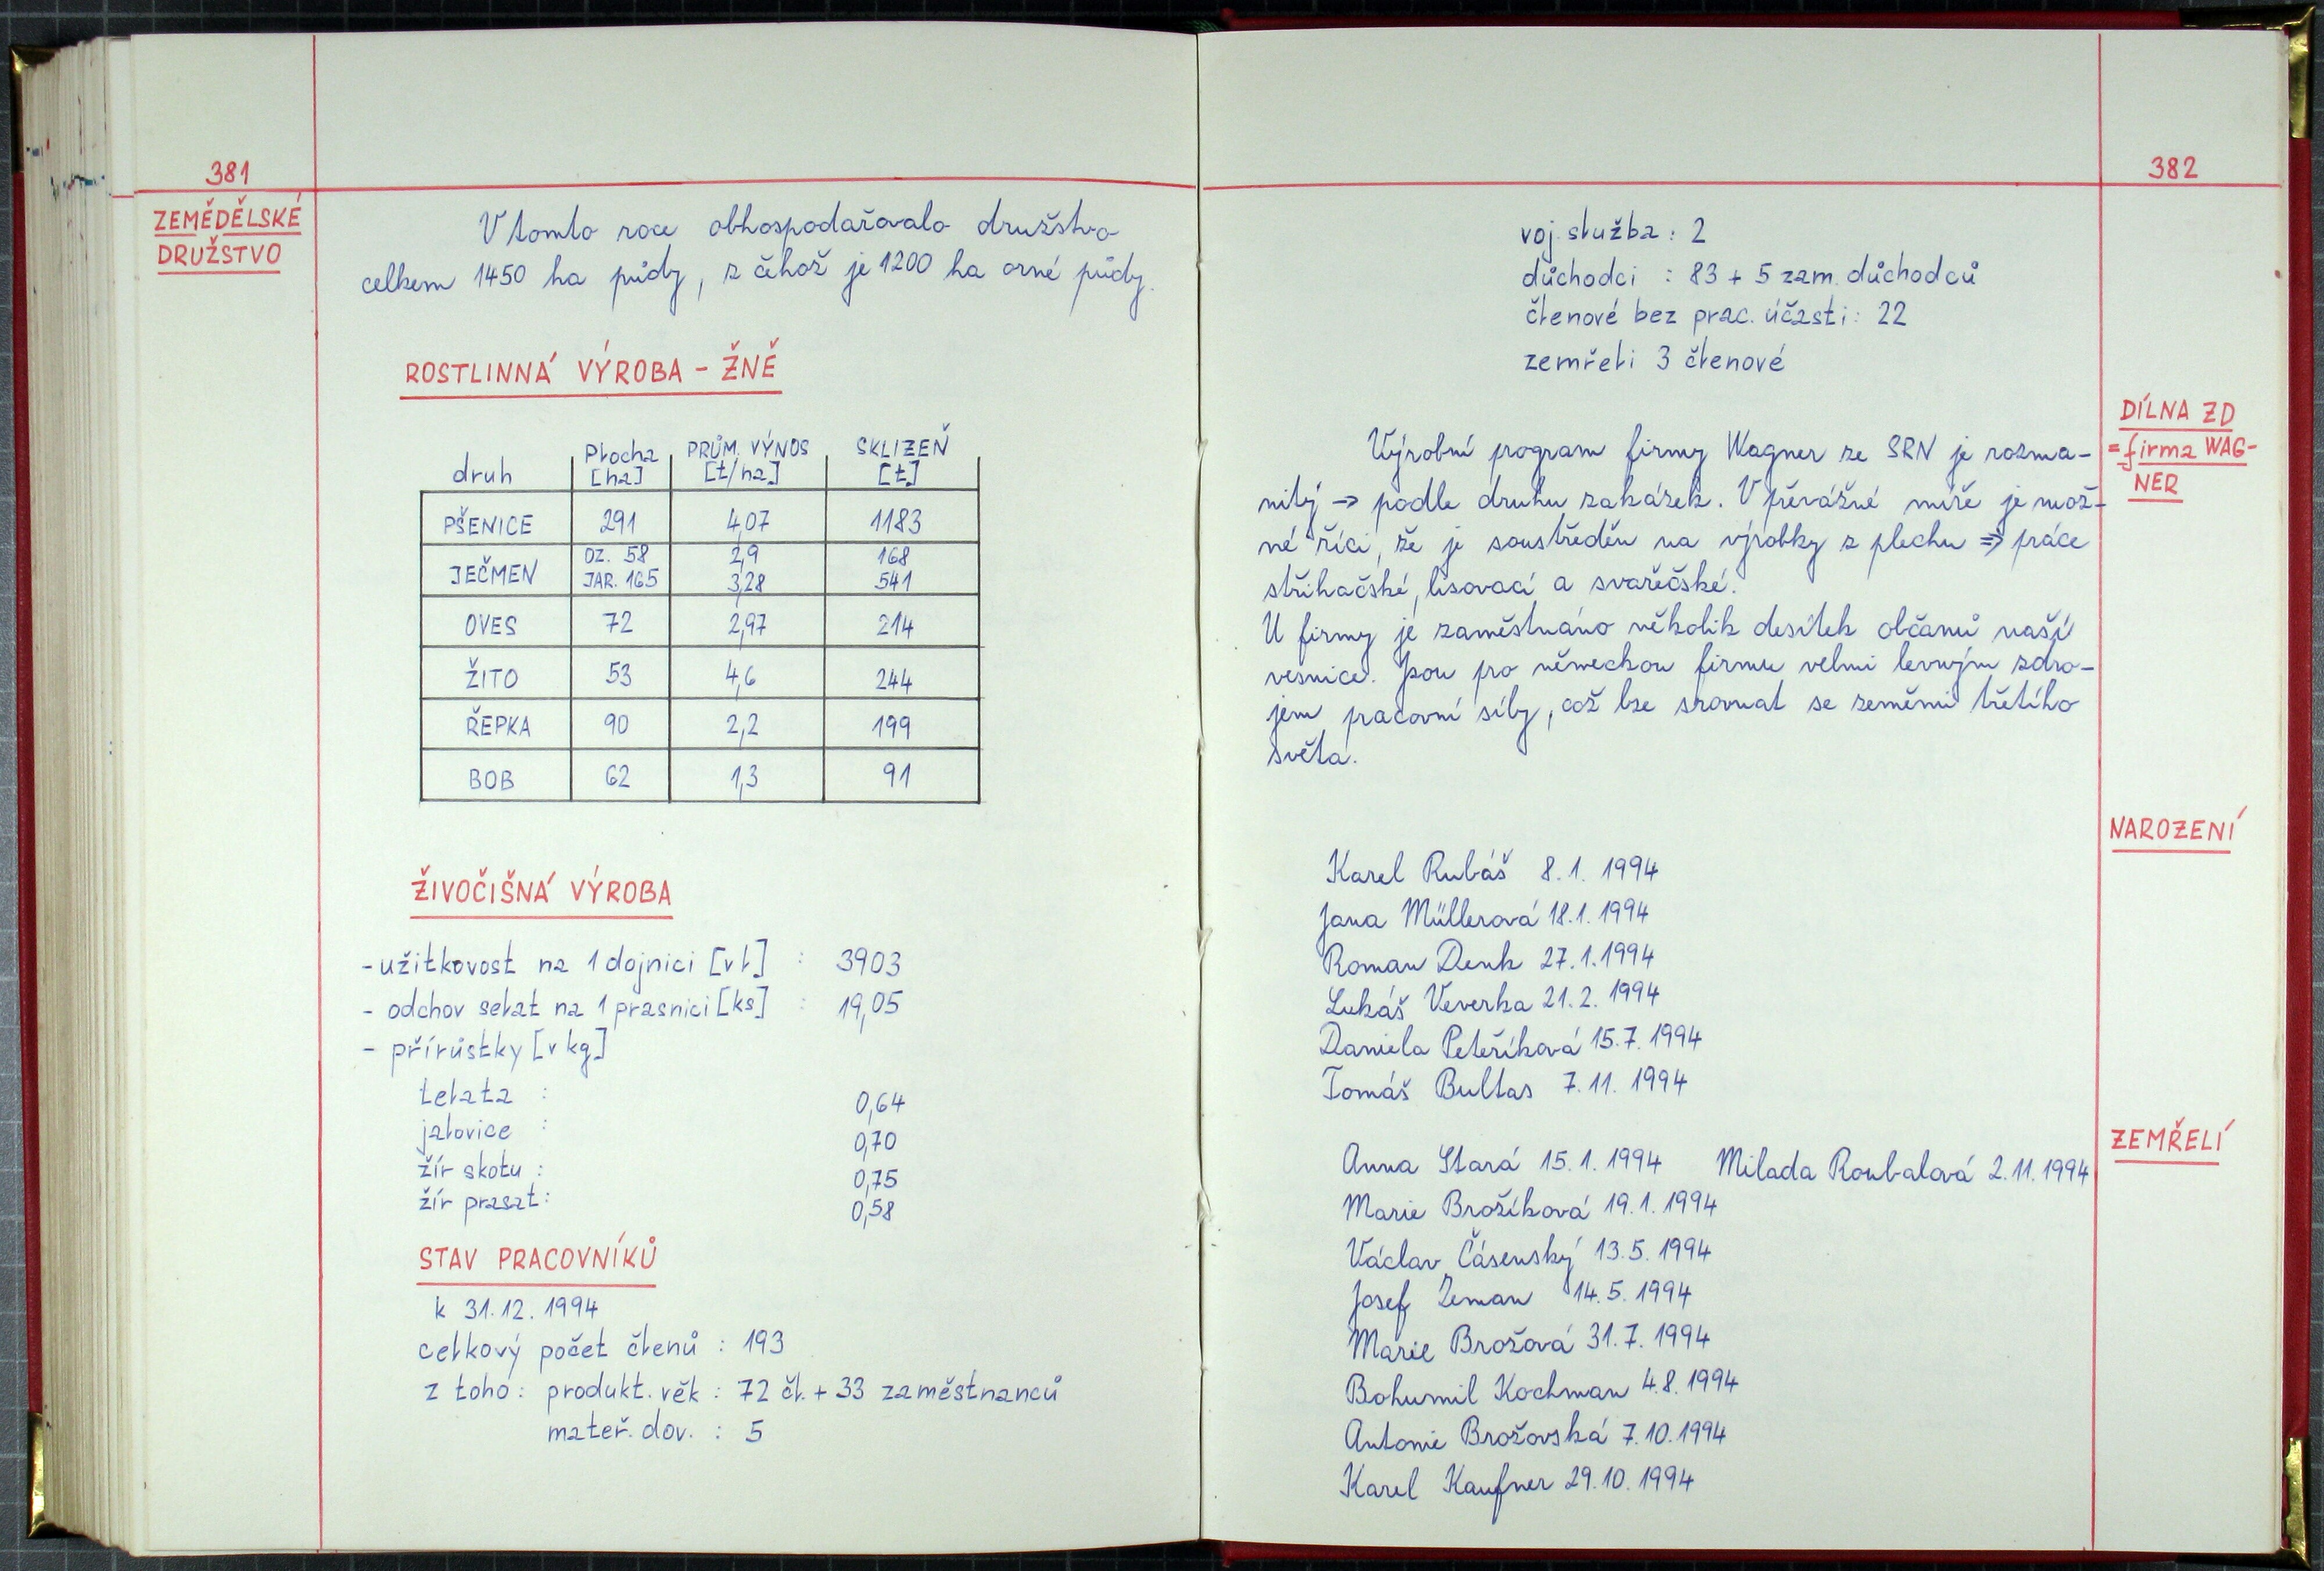 381
ZEMĚDĚLSKÉ
DRUŽSTVO
V tomto roce obhospodařovalo družstvo
celkem 1450 ha půdy, z čehož je 1200 ha orné půdy.
ROSTLINNÁ VÝROBA - ŽNĚ
druh Plocha [ha] PRŮM. VÝNOS [t/ha] SKLIZEŇ [t]
PŠENICE 291 4,07 1183
JEČMEN OZ. 58 2,9 168
JAR. 165 3,28 541
OVES 72 2,97 214
ŽITO 53 4,6 244
ŘEPKA 90 2,2 199
BOB 62 1,3 91
ŽIVOČIŠNÁ VÝROBA
- užitkovost na 1 dojnici [v l] : 3903
- odchov selat na 1 prasnici [ks] : 19,05
- přírůstky [v kg]
telata : 0,64
jalovice : 0,70
žír skotu : 0,75
žír prasat : 0,58
STAV PRACOVNÍKŮ
k 31.12.1994
celkový počet členů : 193
z toho : produkt. věk : 72 čl. + 33 zaměstnanců
mateř. dov. : 5
382
voj. služba : 2
důchodci : 83 + 5 zam. důchodců
členové bez prac. účasti : 22
zemřeli 3 členové
DÍLNA ZD
= firma WAG-
NER
Výrobní program firmy Wagner ze SRN je rozma-
nitý → podle druhu zakázek. V převážné míře je mož-
né říci, že je soustředěn na výrobky z plechu ⇒ práce
střihačské, lisovací a svářečské.
U firmy je zaměstnáno několik desítek občanů naší
vesnice. Jsou pro německou firmu velmi levným zdro-
jem pracovní síly, což lze srovnat se zeměmi třetího
světa.
NAROZENÍ
Karel Rubáš 8.1. 1994
Jana Müllerová 18.1. 1994
Roman Denk 27.1.1994
Lukáš Veverka 21.2. 1994
Daniela Peteříková 15.7. 1994
Tomáš Bultas 7.11. 1994
ZEMŘELÍ
Anna Stará 15.1. 1994 Milada Roubalová 2.11.1994
Marie Brožíková 19.1. 1994
Václav Čásenský 13.5. 1994
Josef Zeman 14.5. 1994
Marie Brožová 31.7. 1994
Bohumil Kochman 4.8. 1994
Antonie Brožovská 7.10.1994
Karel Kaufner 29.10.1994